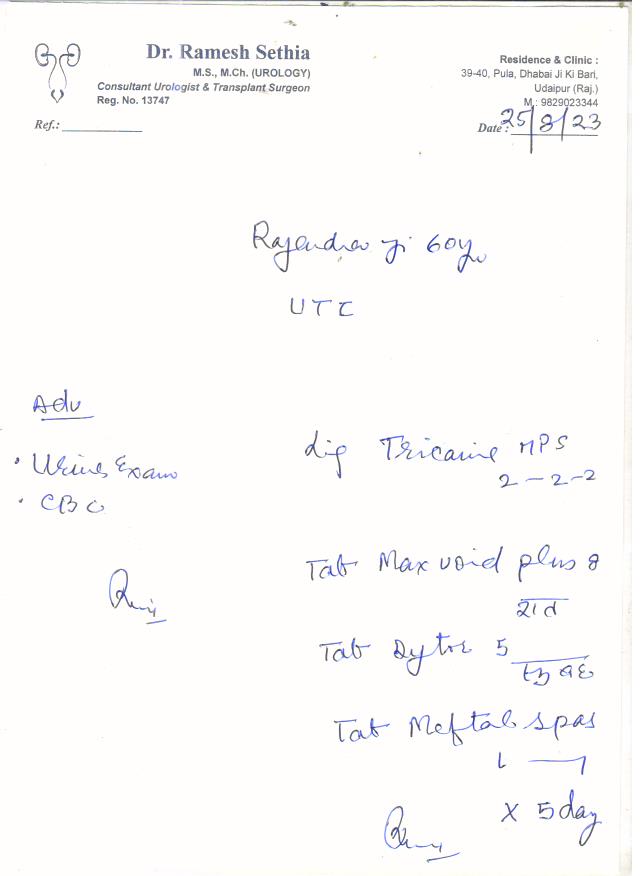 Dr. Ramesh Sethia
M.S., M.Ch. (UROLOGY)
Consultant Urologist & Transplant Surgeon
Reg. No. 13747
Residence & Clinic :
39-40, Pula, Dhabai Ji Ki Bari,
Udaipur (Raj.)
M.: 9829023344
Ref.:
Date : 25/8/23
Rajendra Ji 60y
UTI
Adv
• Urine Exam
• CBC
Liq Tricaine MPS
2 - 2 - 2
Tab Maxvoid plus 8
रात
Tab Dytor 5
सुबह
Tab Meftal spas
1 — 1
X 5 day